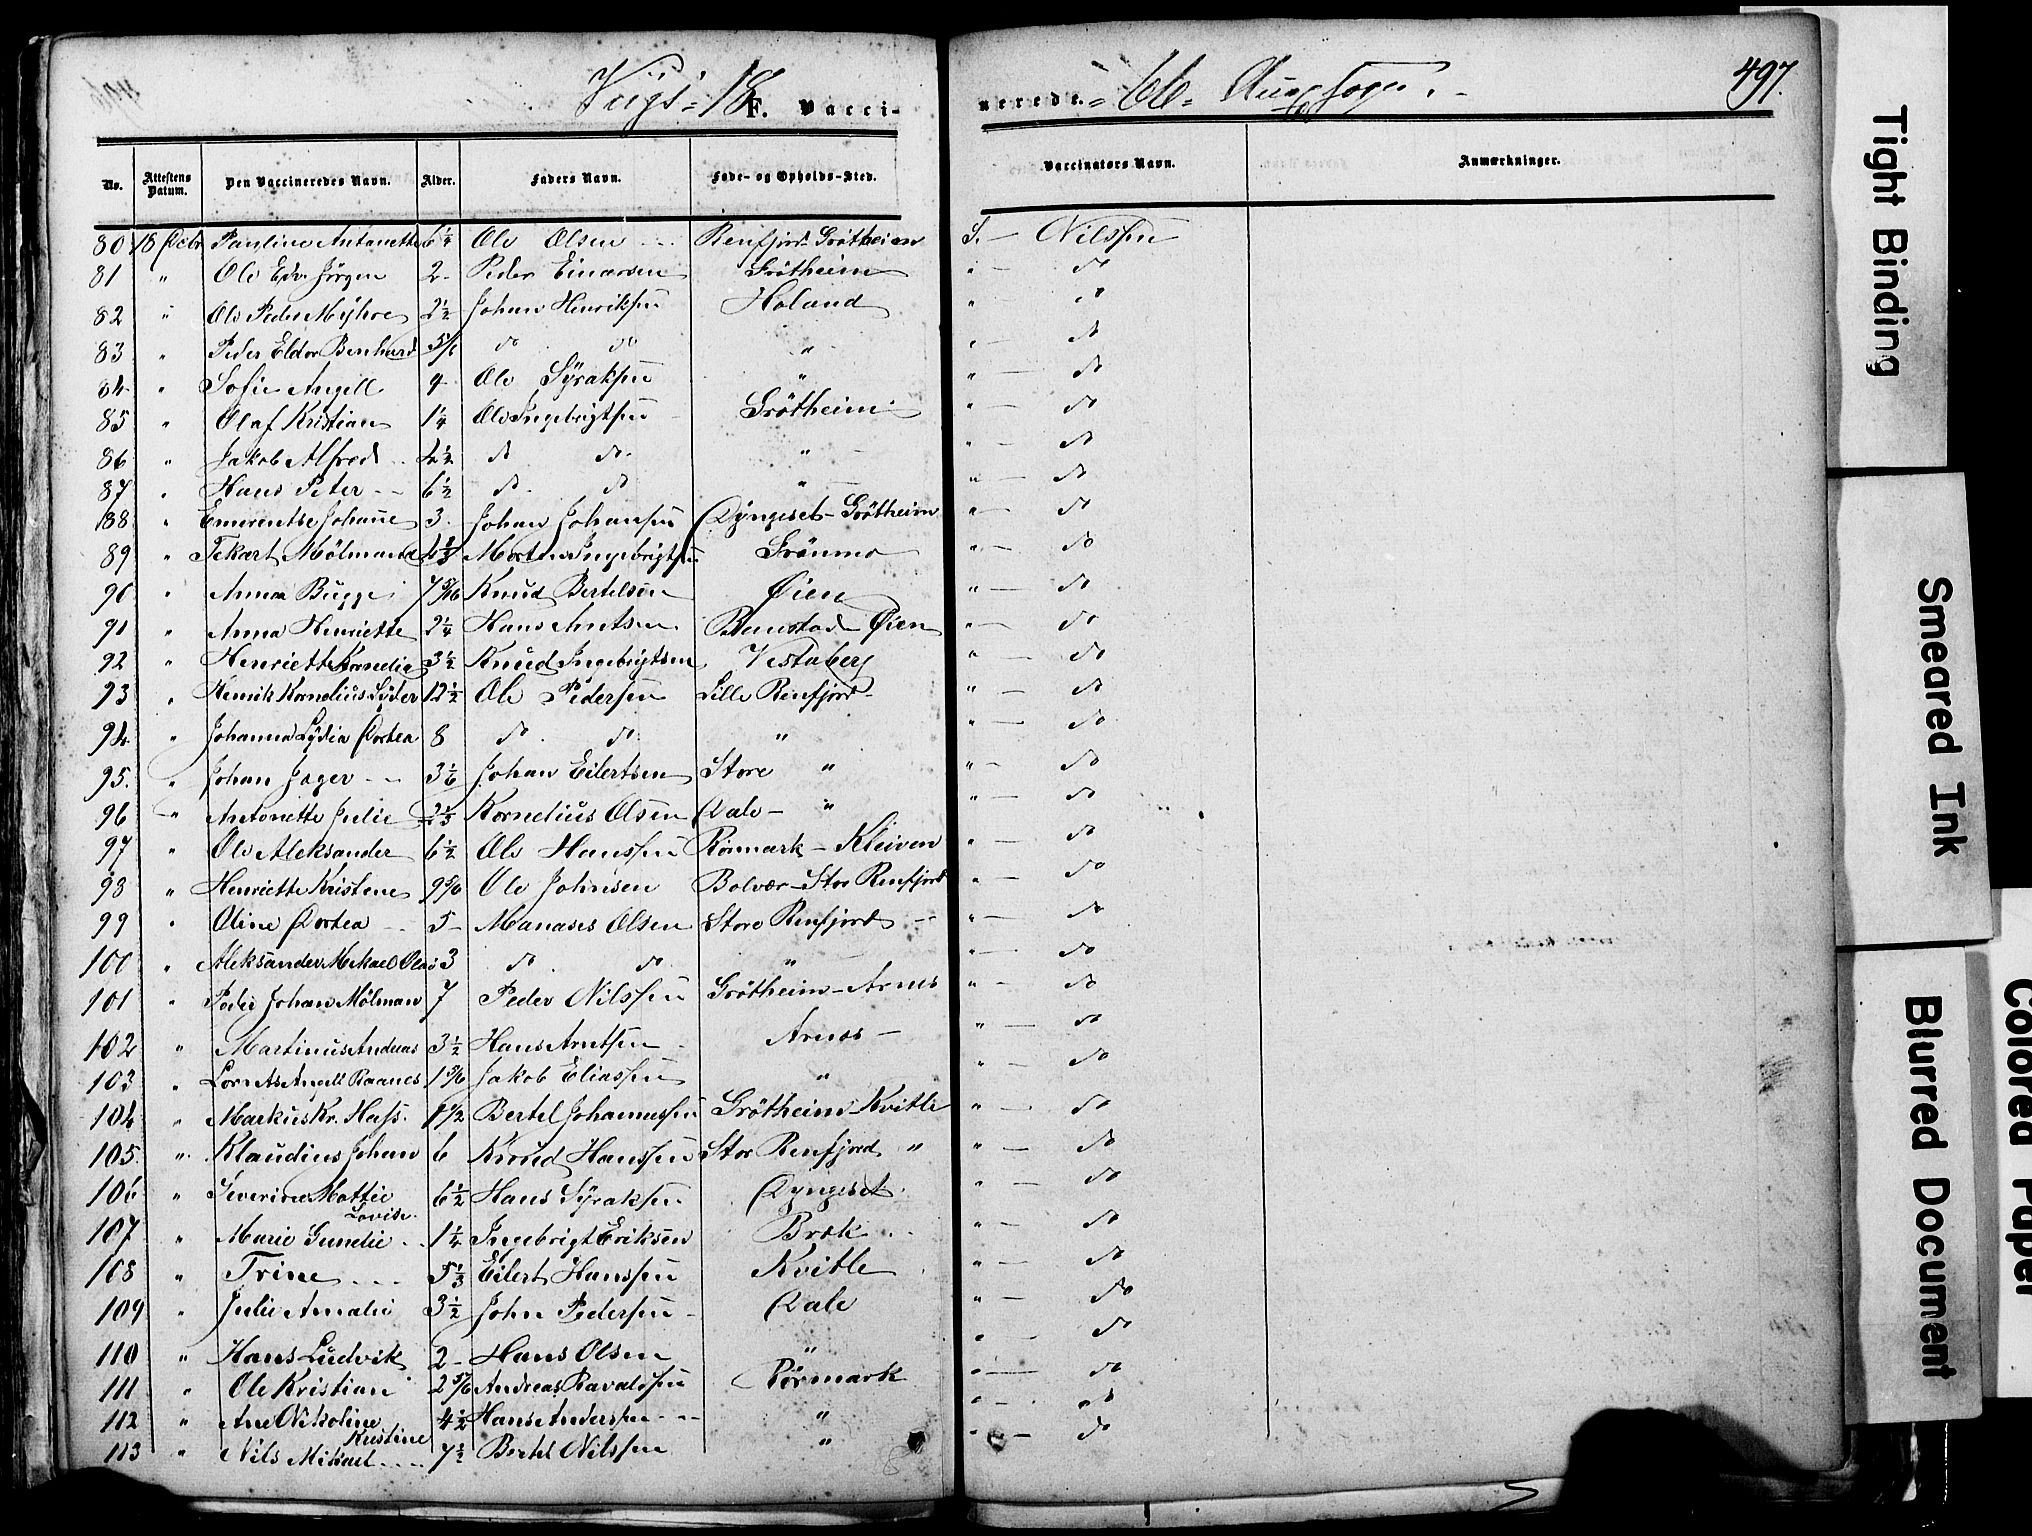 Vügs 18 F. Vacci- nerede. 66. sogn. 497.
No. Attestens Datum. Den Vaccineredes Navn. Alder. Faders Navn. Føde- og Opholds-Sted. Vaccinators Navn. Anmærkninger.
80 18 Decbr Pauline Antonette 6 1/4 Ole Olsen Renfjord Grötheim S. — Nilssen
81 " Ole Edv. Jörgen 2 - Peder Einarsen Grötheim " — do
82 " Ole Peder Myhre 2 1/2 Johan Henriksen Holand " do
83 " Peder Eldor Bernhard 5/6 do do " " — do
84 " Sofie Angell 4 Ole Syraksen " " — do
85 " Olaf Kristian 1 1/4 Ole Ingebrigtsen Grötheim " — do
86 " Jakob Alfred 4 1/2 do do " " — do
87 " Hans Peter 6 1/2 do do " " — do
88 " Emerentse Johanne 3 Johan Johansen Dyngeset - Grötheim " — do
89 " Tekart Mølmand 6 1/3 Morten Ingebrigtsen Grönmo " — do
90 " Anna Bugge 7 5/6 Knud Bertelsen Øien " — do
91 " Anna Henriette 2 1/4 Hans Arntsen Øien " — do
92 " Henriette Kornelia 3 1/2 Knud Ingebrigtsen Vestaberg " — do
93 " Henrik Kornelius Syder 12 1/2 Ole Pedersen Lille Renfjord " — do
94 " Johanna Lydia Dortea 8 do do " " — do
95 " Johan Jager 3 1/6 Johan Eilertsen Store " " — do
96 " Antonette Julie 2 1/3 Kornelius Olsen Dale - " " — do
97 " Ole Aleksander 6 1/2 Ole Hanssen Rörmark - Kleiven " — do
98 " Henriette Kristene 9 5/6 Ole Johnsen Bolvær - Stor Renfjord " — do
99 " Oline Dortea 5 - Manases Olsen Store Renfjord " — do
100 " Aleksander Mekael Olaus 3 do do " " — do
101 " Peder Johan Mölman 7 Peder Nilssen Grötheim - Arnes " — do
102 " Martinus Andreas 3 1/2 Hans Arntsen Arnes - " — do
103 " Lorents Angell Raanes 1 5/6 Jakob Eliassen " " — do
104 " Markus Kr. Hass. 1 1/2 Bertel Johannessen Grötheim - Kvitle " — do
105 " Klaudius Johan 6 Knud Hanssen Stor Renfjord " " — do
106 " Severine Mattie Lovise 6 1/2 Hans Syraksen Dyngeset " — do
107 " Marie Gunelie 1 1/4 Ingebrigt Eriksen Bræk " — do
108 " Trine 5 1/3 Eilert Hanssen Kvitle " — do
109 " Julie Amalie 3 1/2 John Pedersen Dale " — do
110 " Hans Ludvik 2 - Hans Olsen " " — do
111 " Ole Kristian 2 5/6 Andreas Ravaldsen Rörmark " — do
112 " Ane Nikoline Kristine 4 1/2 Hans Anderssen " " — do
113 " Nils Mikael 7 1/2 Bertel Nilssen " " — do
Tight Binding
Smeared Ink
Blurred Document
Colored Paper